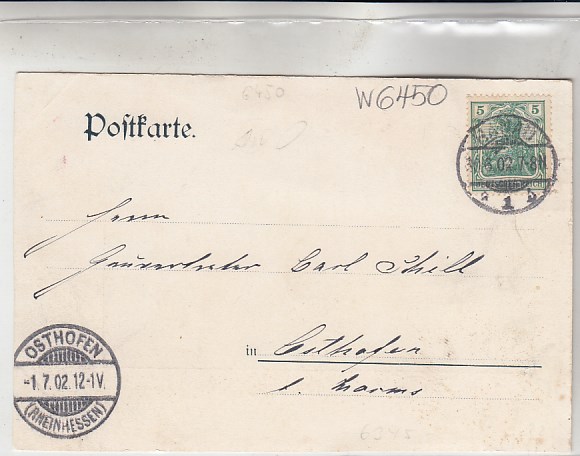 6450
W6450
Postkarte.
5 5
DEUTSCHES REICH
.6.02.7-8N
1
Herrn
Carl Schill
in Osthofen
b. Worms
OSTHOFEN
-1.7.02.12-1V.
(RHEINHESSEN)
6345